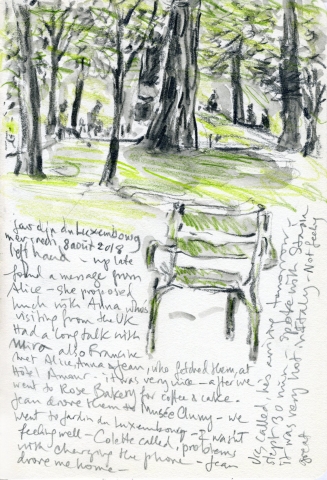 Jardin du Luxembourg
mercredi, 8 août 2018
left hand - up late
found a message from
Alice - she proposed
lunch with Anna, who's
visiting from the UK
Had a long talk with
Mira also Francine
met Alice, Anna & Jean, who fetched them, at
Hôtel Amour - it was very nice - after we
went to Rose Bakery for coffee & cake.
Jean drove them to Musée Cluny - we
went to Jardin du Luxembourg - I wasn't
feeling well - Colette called, problems
with charging the phone - Jean
drove me home -
called, he's arriving tomorrow
slept 30 min - spoke with
it was very hot - Not feeling
great